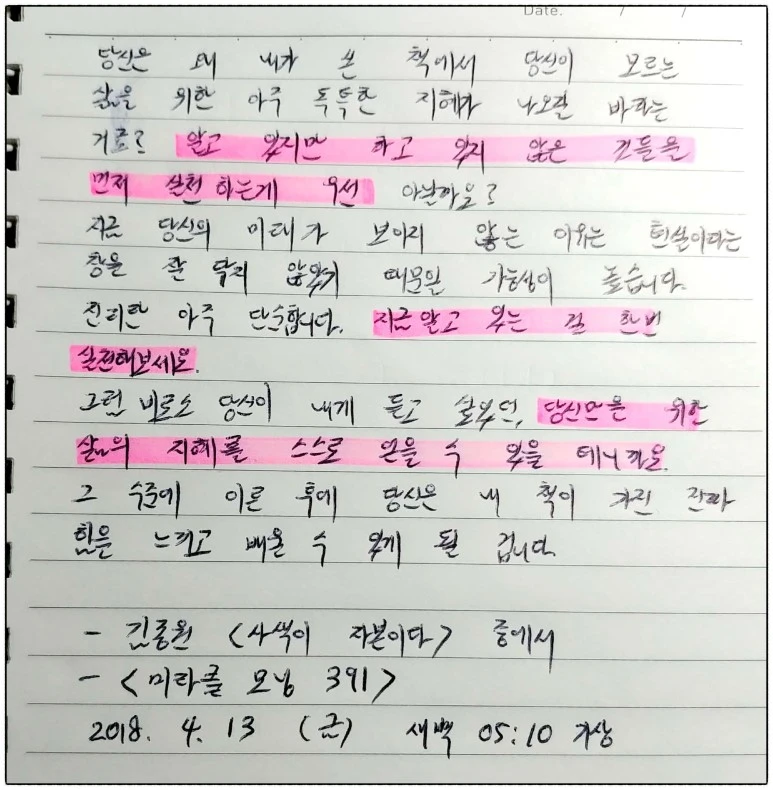 Date. / /
당신은 왜 내가 쓴 책에서 당신이 모르는
삶을 위한 아주 독특한 지혜가 나오길 바라는
거죠? 알고 있지만 하고 있지 않은 것들을
먼저 실천하는게 우선 아닐까요?
지금 당신의 미래가 보이지 않는 이유는 현실이라는
창을 잘 닦지 않았기 때문일 가능성이 높습니다.
진리란 아주 단순합니다. 지금 알고 있는 걸 한번
실천해보세요.
그럼 비로소 당신이 내게 듣고 싶었던, 당신만을 위한
삶의 지혜를 스스로 얻을 수 있을 테니까요.
그 수준에 이른 후에 당신은 내 책이 가진 진짜
힘을 느끼고 배울 수 있게 될 겁니다.
- 김종원 <사색이 자본이다> 중에서
- <미라클 모닝 391>
2018. 4. 13 (금) 새벽 05:10 기상